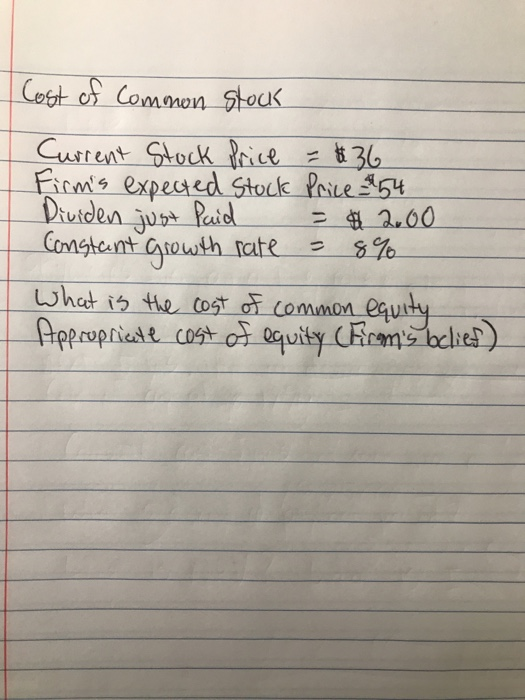 Cost of Common Stock
Current Stock Price = $36
Firm's expected Stock Price = $54
Dividen just Paid = $ 2.00
Constant growth rate = 8%
What is the cost of common equity
Appropriate cost of equity (Firm's belief)